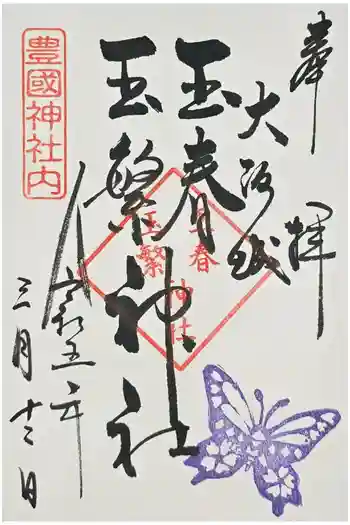 奉拝
大阪城
玉春
玉繁神社
豊國神社内
玉春
玉繁
神社
令和五年
三月十二日